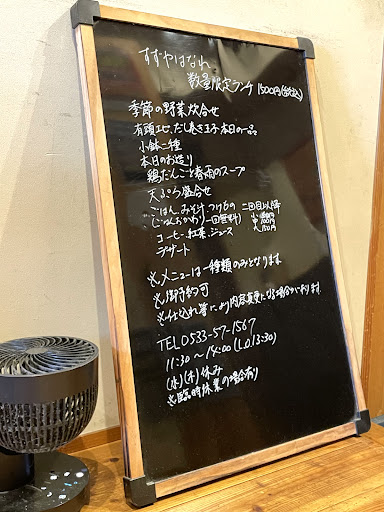 すずやはなれ
数量限定ランチ 1500円(税込)
季節の野菜炊合せ
有頭エビ、だし巻き玉子、本日の一品
小鉢二種
本日のお造り
鶏だんごと春雨のスープ
天ぷら盛合せ
ごはん、みそ汁、つけもの 二回目以降
(ごはんおかわり一回無料) 小 中100円 大150円
コーヒー、紅茶、ジュース
デザート
※メニューは一種類のみとなります
※御予約可
※仕入れ等により内容変更になる場合があります
TEL 0533-57-1567
11:30〜14:00(L.O.13:30)
(水)(木)休み
※臨時休業の場合有り